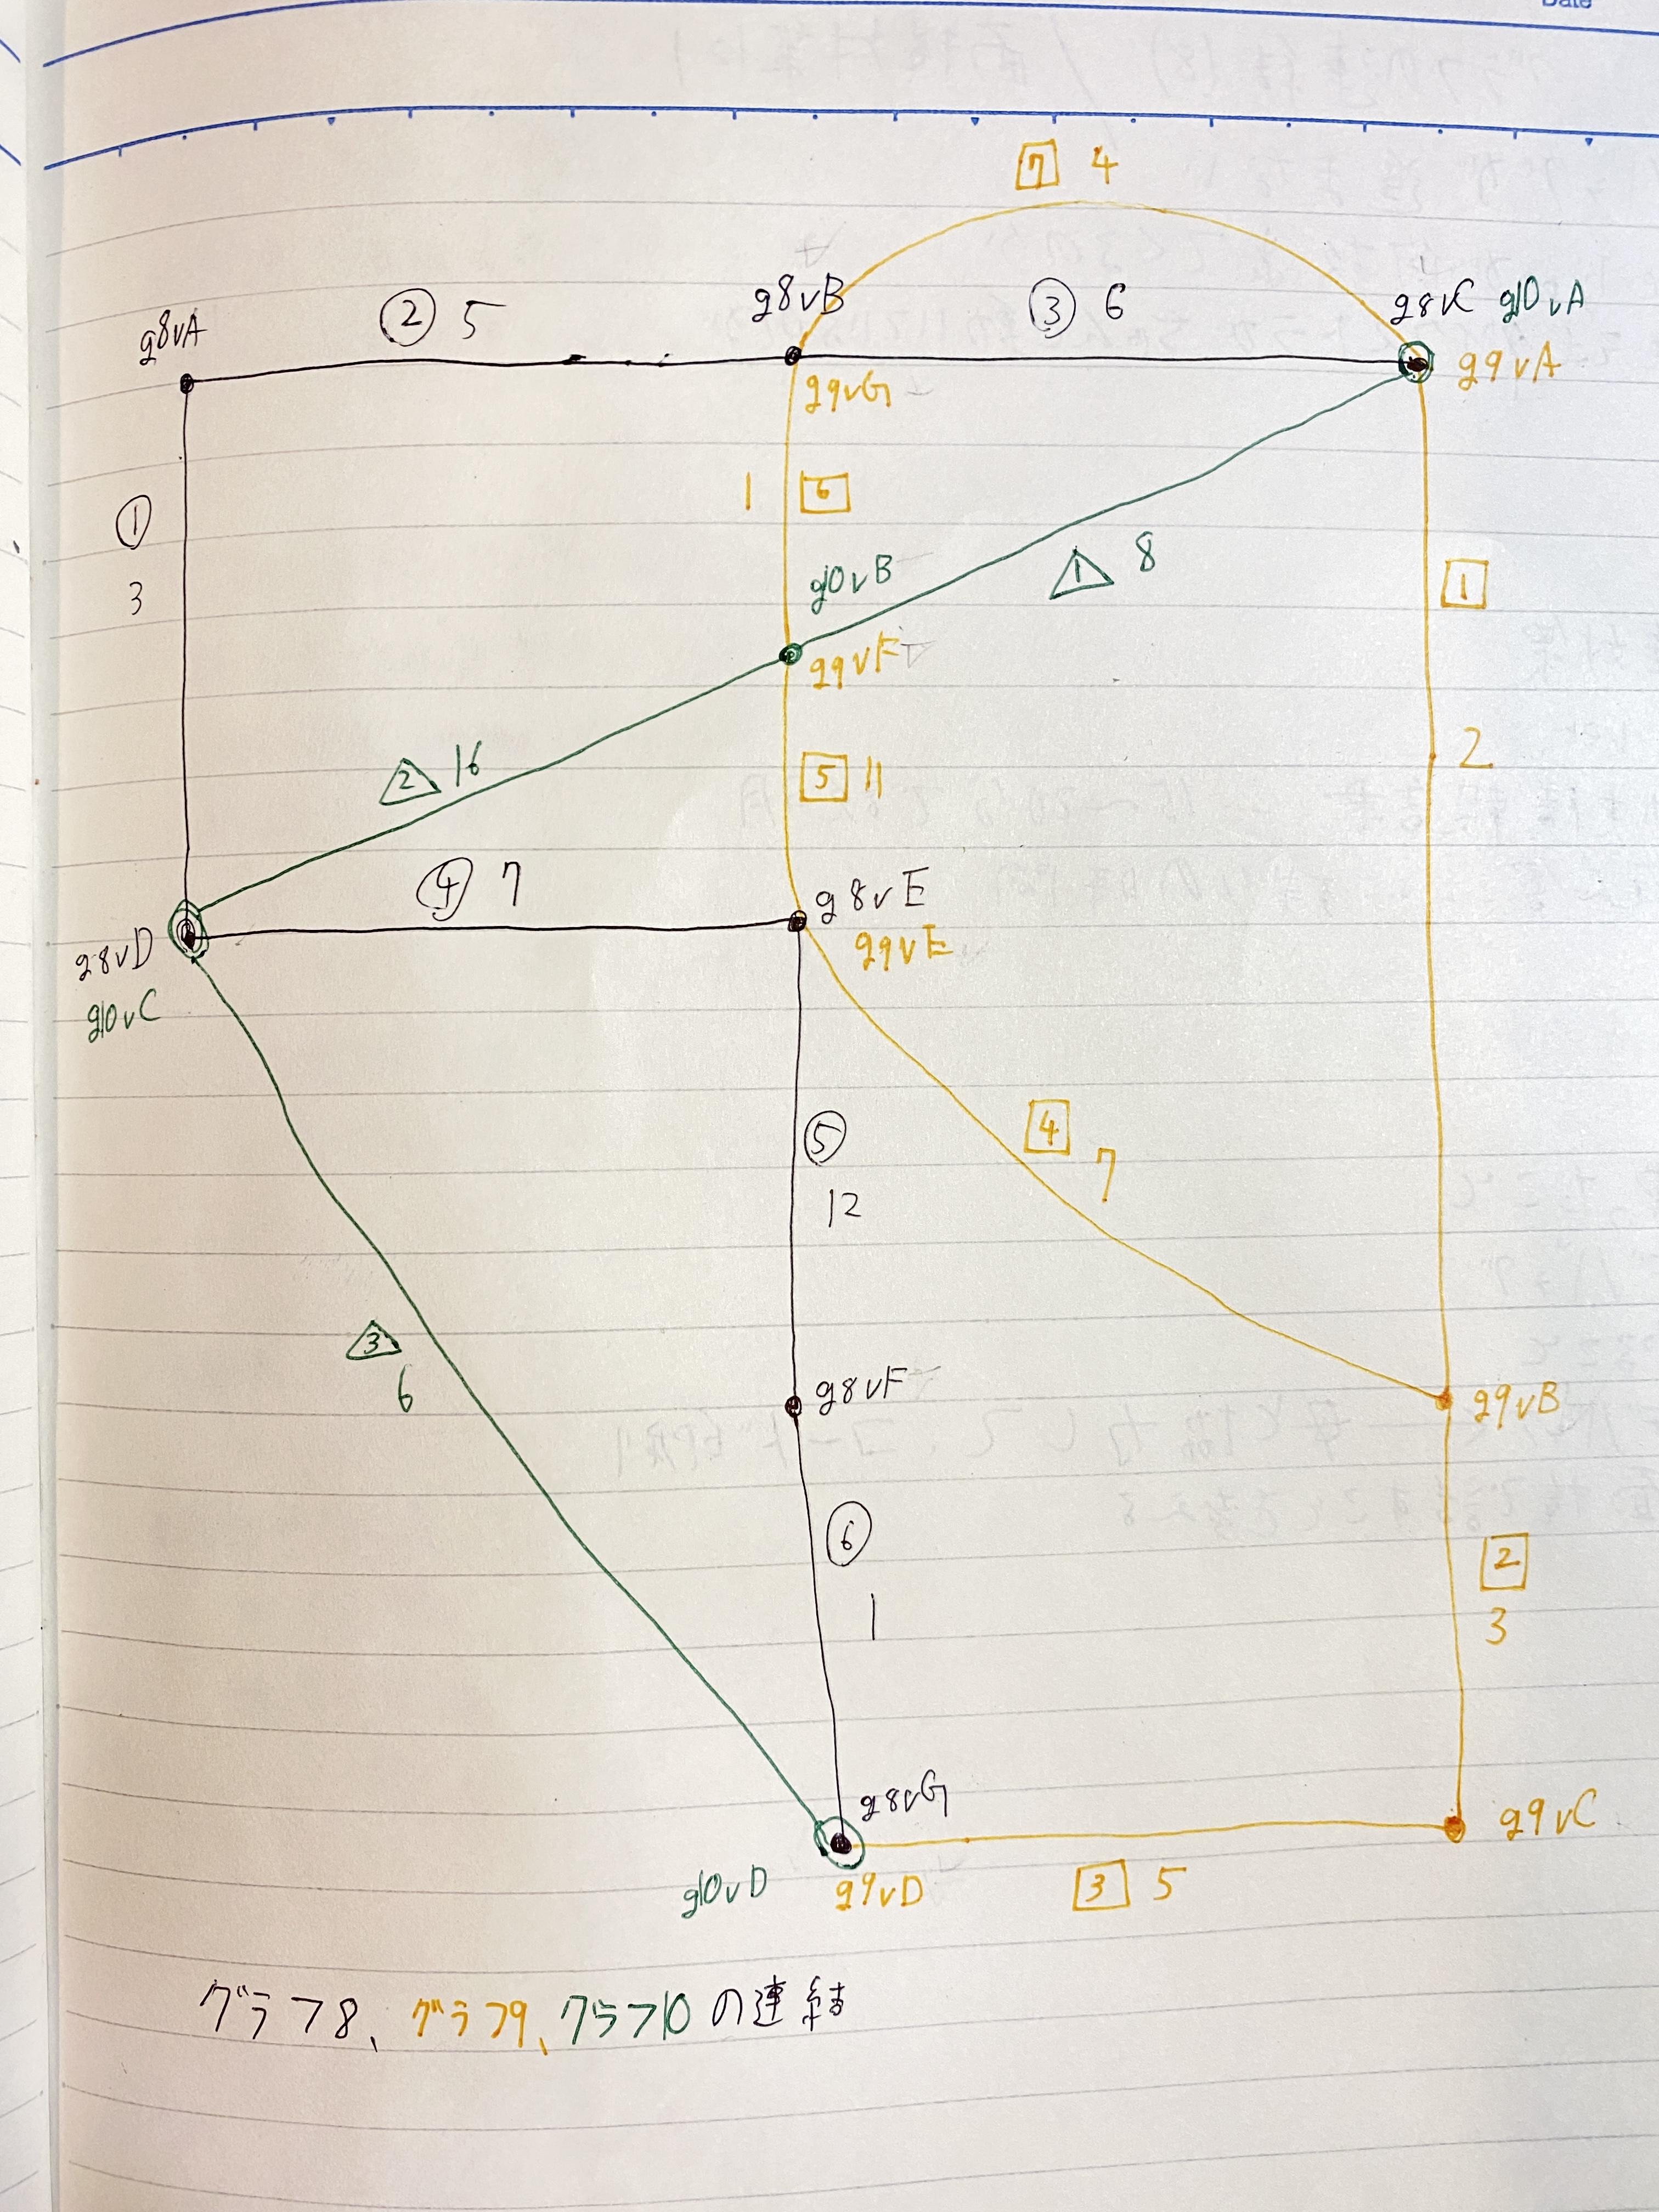 Date
7 4
g8vA ② 5 g8vB ③ 6 g8vC g10vA
g9vG g9vA
① 1 6
3 g10vB 1 8 1
g9vF
2 16 5 11 2
④ 7 g8vE
g8vD g9vE
g10vC
⑤ 4
12 7
3
6 g8vF g9vB
⑥ 2
1 3
g8vG
g10vD g9vD 3 5 g9vC
グラフ8、グラフ9、グラフ10の連結